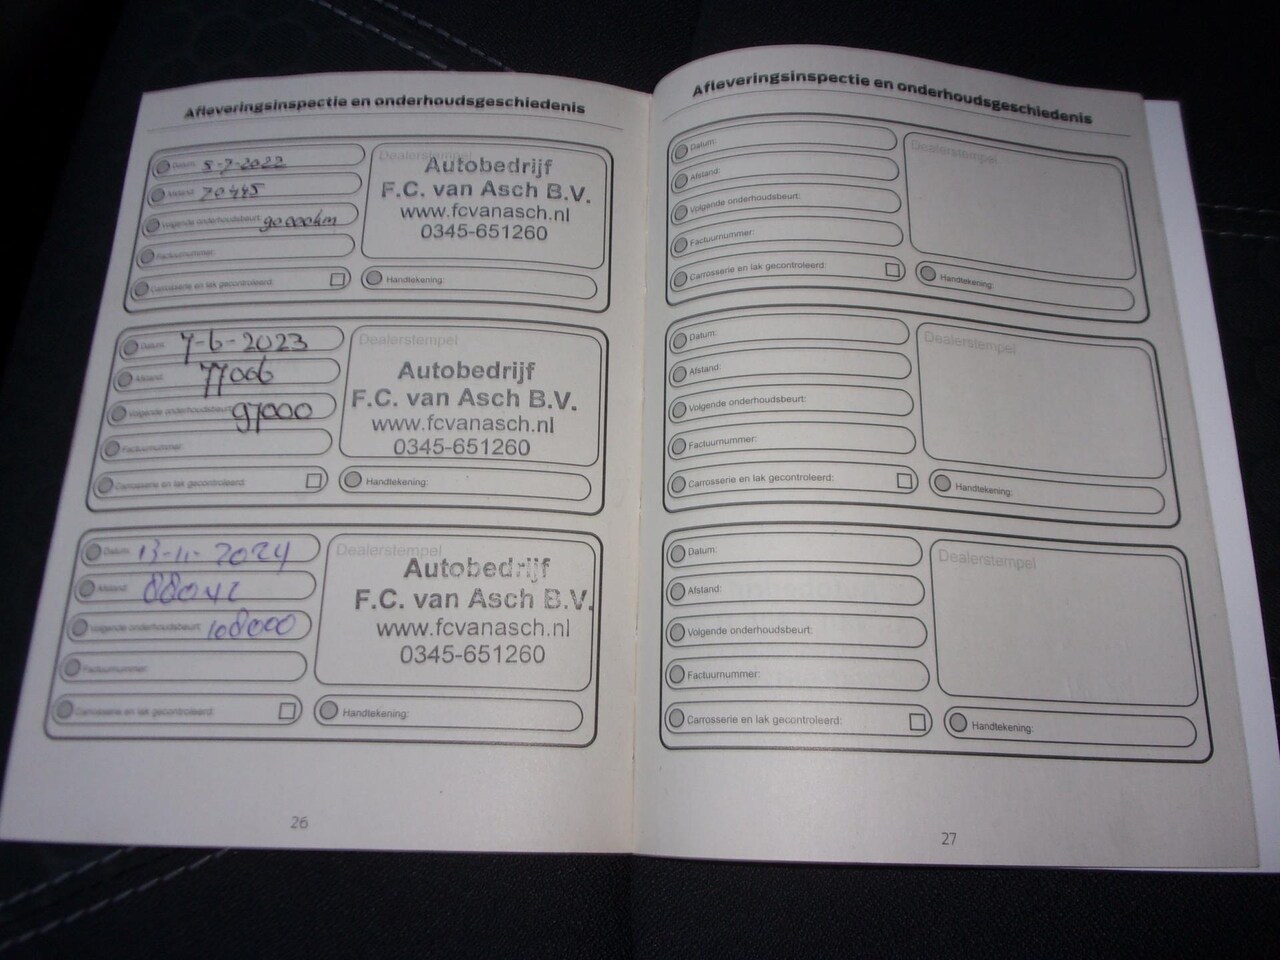 Afleveringsinspectie en onderhoudsgeschiedenis
Datum: 5-7-2022
Afstand: 70445
Volgende onderhoudsbeurt: 90000km
Factuurnummer:
Carrosserie en lak gecontroleerd:
Dealerstempel
Autobedrijf
F.C. van Asch B.V.
www.fcvanasch.nl
0345-651260
Handtekening:
Datum: 7-6-2023
Afstand: 77006
Volgende onderhoudsbeurt: 97000
Factuurnummer:
Carrosserie en lak gecontroleerd:
Dealerstempel
Autobedrijf
F.C. van Asch B.V.
www.fcvanasch.nl
0345-651260
Handtekening:
Datum: 13-11-2024
Afstand: 88042
Volgende onderhoudsbeurt: 108000
Factuurnummer:
Carrosserie en lak gecontroleerd:
Dealerstempel
Autobedrijf
F.C. van Asch B.V.
www.fcvanasch.nl
0345-651260
Handtekening:
26
Afleveringsinspectie en onderhoudsgeschiedenis
Datum:
Afstand:
Volgende onderhoudsbeurt:
Factuurnummer:
Carrosserie en lak gecontroleerd:
Dealerstempel
Handtekening:
Datum:
Afstand:
Volgende onderhoudsbeurt:
Factuurnummer:
Carrosserie en lak gecontroleerd:
Dealerstempel
Handtekening:
Datum:
Afstand:
Volgende onderhoudsbeurt:
Factuurnummer:
Carrosserie en lak gecontroleerd:
Dealerstempel
Handtekening:
27